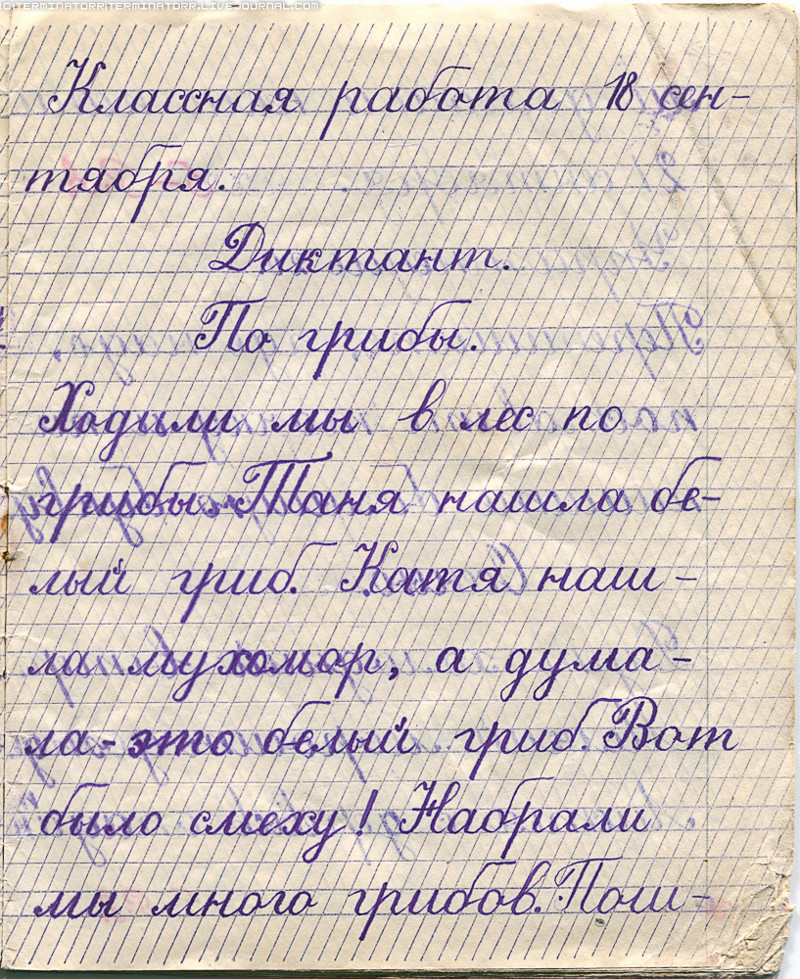 DTERMINATORRTERMINATORR.LIVEJOURNAL.COM
Классная работа 18 сен-
тября.
Диктант.
По грибы.
Ходили мы в лес по
грибы. Таня нашла бе-
лый гриб. Катя наш-
ла мухомор, а дума-
ла - это белый гриб. Вот
было смеху! Набрали
мы много грибов. Пош-